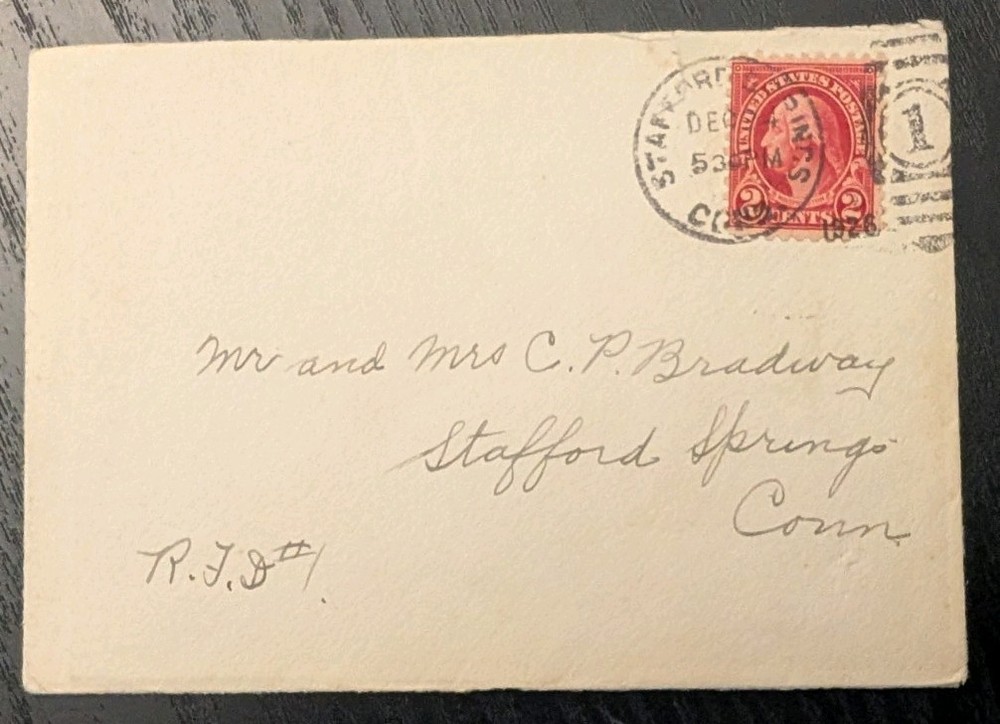 STAFFORD SPRINGS
DEC 4
530 PM
CONN.
1926
1
UNITED STATES POSTAGE
2 CENTS 2
Mr and Mrs C. P. Bradway
Stafford Springs
Conn.
R.F.D #1.